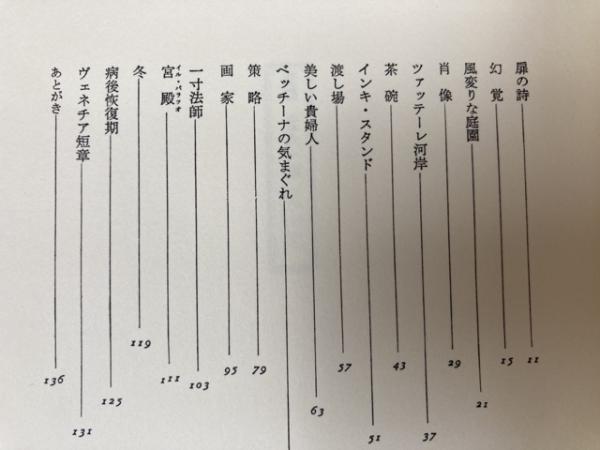 扉の詩 11
幻覚 15
風変りな庭園 21
肖像 29
ツァッテーレ河岸 37
茶碗 43
インキ・スタンド 51
渡し場 57
美しい貴婦人 63
ベッチーナの気まぐれ
策略 79
画家 95
一寸法師 103
宮殿 イル・パラツォ 111
冬 119
病後恢復期 125
ヴェネチア短章 131
あとがき 136